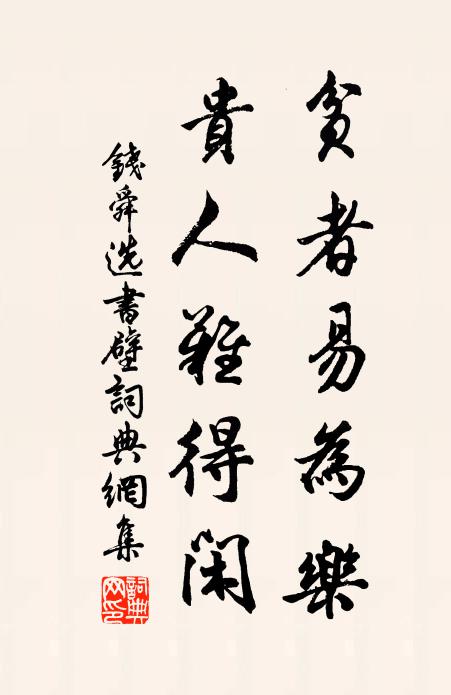 貧者易為樂
貴人難得閑
錢舜选書壁詞典網集
詞典网印